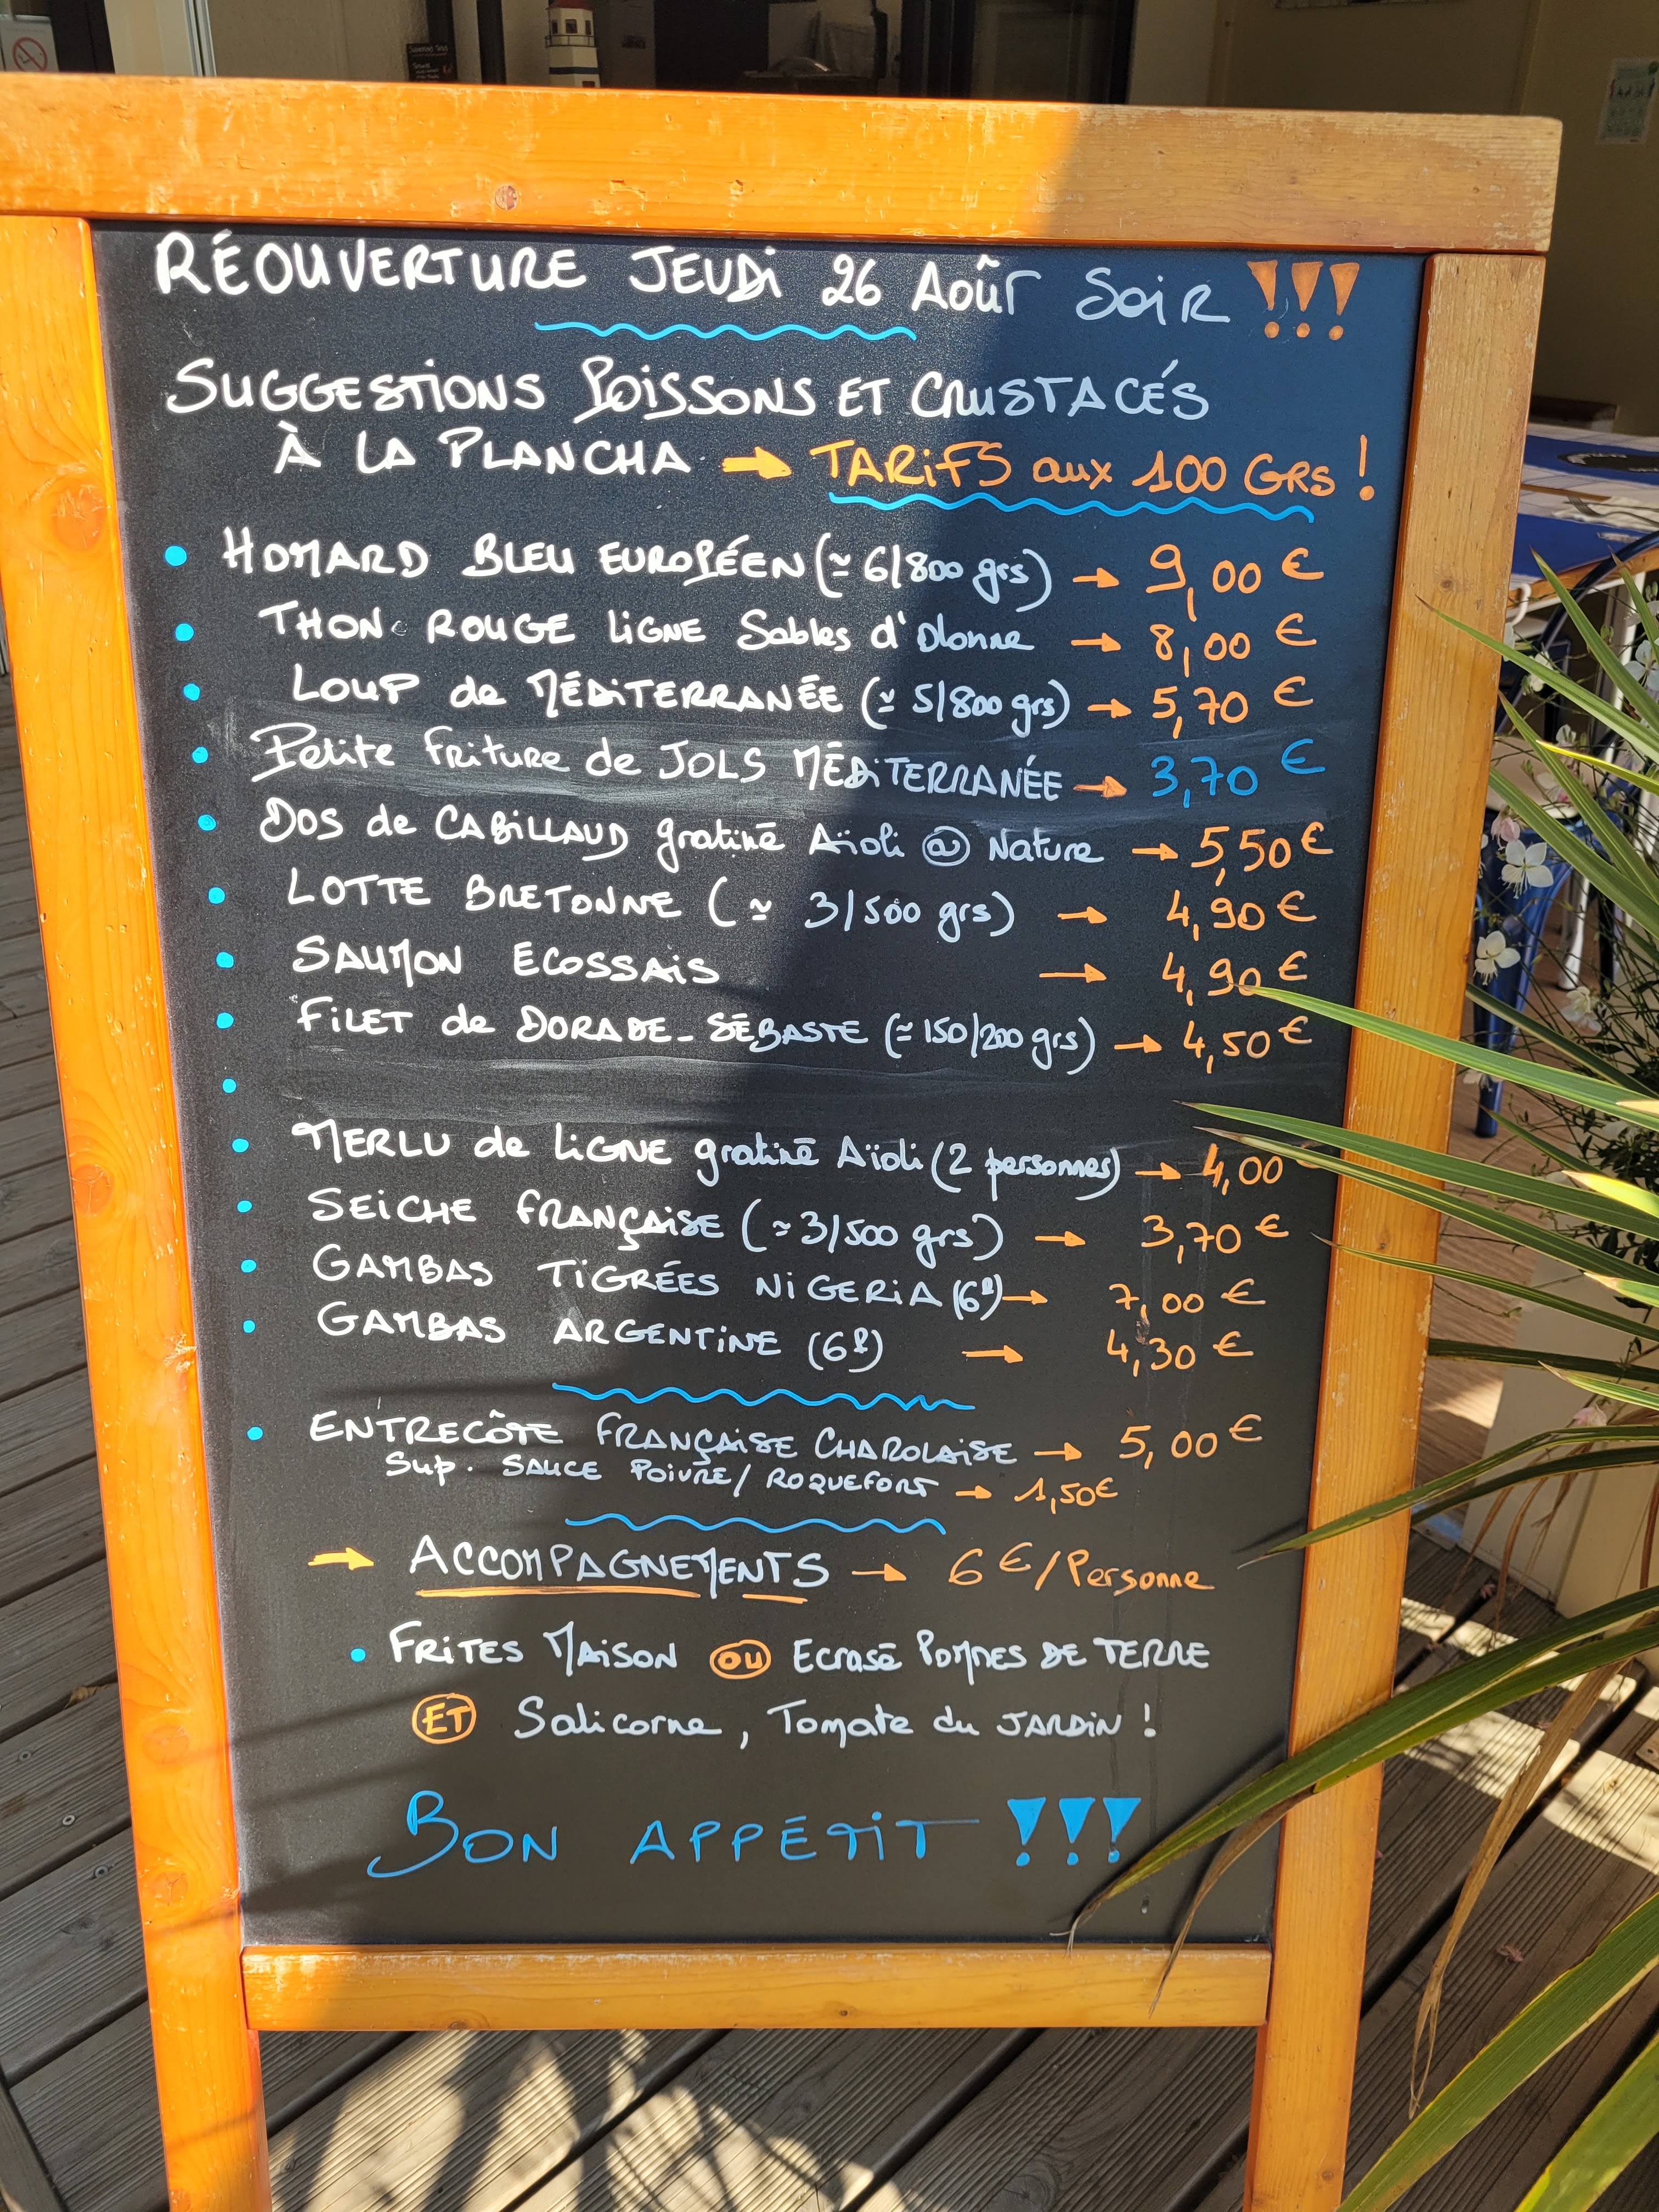 RÉOUVERTURE JEUDI 26 AOÛT SOIR !!!
SUGGESTIONS POISSONS ET CRUSTACÉS
À LA PLANCHA → TARIFS aux 100 GRS !
• HOMARD BLEU EUROPÉEN (≃ 6/800 grs) → 9,00 €
• THON ROUGE LIGNE Sables d'Olonne → 8,00 €
• LOUP de MÉDITERRANÉE (≃ 5/800 grs) → 5,70 €
• Petite Friture de JOLS MÉDITERRANÉE → 3,70 €
• DOS de CABILLAUD gratiné Aïoli @ Nature → 5,50 €
• LOTTE BRETONNE (≃ 3/500 grs) → 4,90 €
• SAUMON ECOSSAIS → 4,90 €
• FILET de DORADE-SÉBASTE (≃ 150/200 grs) → 4,50 €
•
• MERLU de LIGNE gratiné Aïoli (2 personnes) → 4,00
• SEICHE FRANÇAISE (≃ 3/500 grs) → 3,70 €
• GAMBAS TIGRÉES NIGERIA (6P) → 7,00 €
• GAMBAS ARGENTINE (6P) → 4,30 €
• ENTRECÔTE FRANÇAISE CHAROLAISE → 5,00 €
Sup. SAUCE POIVRE / ROQUEFORT → 1,50€
→ ACCOMPAGNEMENTS → 6 €/Personne
• FRITES MAISON OU Ecrasé POMMES DE TERRE
ET Salicorne, Tomate du JARDIN !
BON APPÉTIT !!!